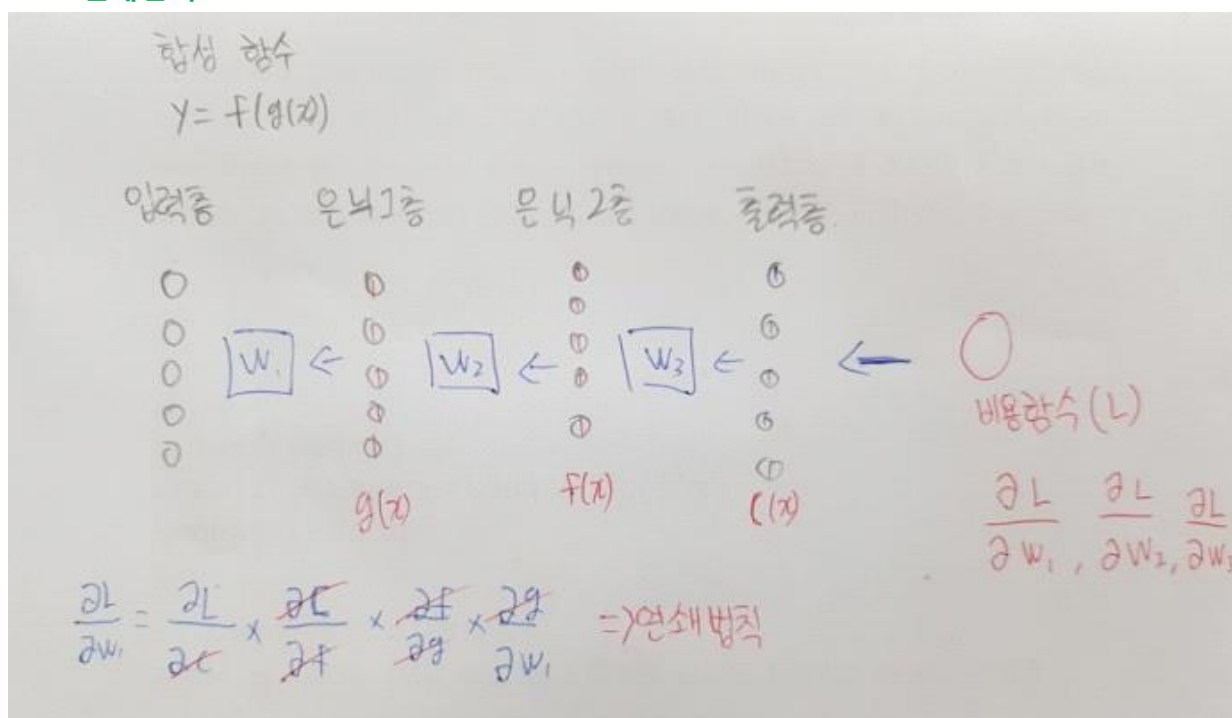 합성 함수
y = f(g(x))
입력층 은닉1층 은닉2층 출력층
W₁ ← W₂ ← W₃ ← ←
비용함수 (L)
g(x) f(x) C(x)
∂L/∂W₁, ∂L/∂W₂, ∂L/∂W₃
∂L/∂W₁ = ∂L/∂C × ∂C/∂f × ∂f/∂g × ∂g/∂W₁ => 연쇄법칙